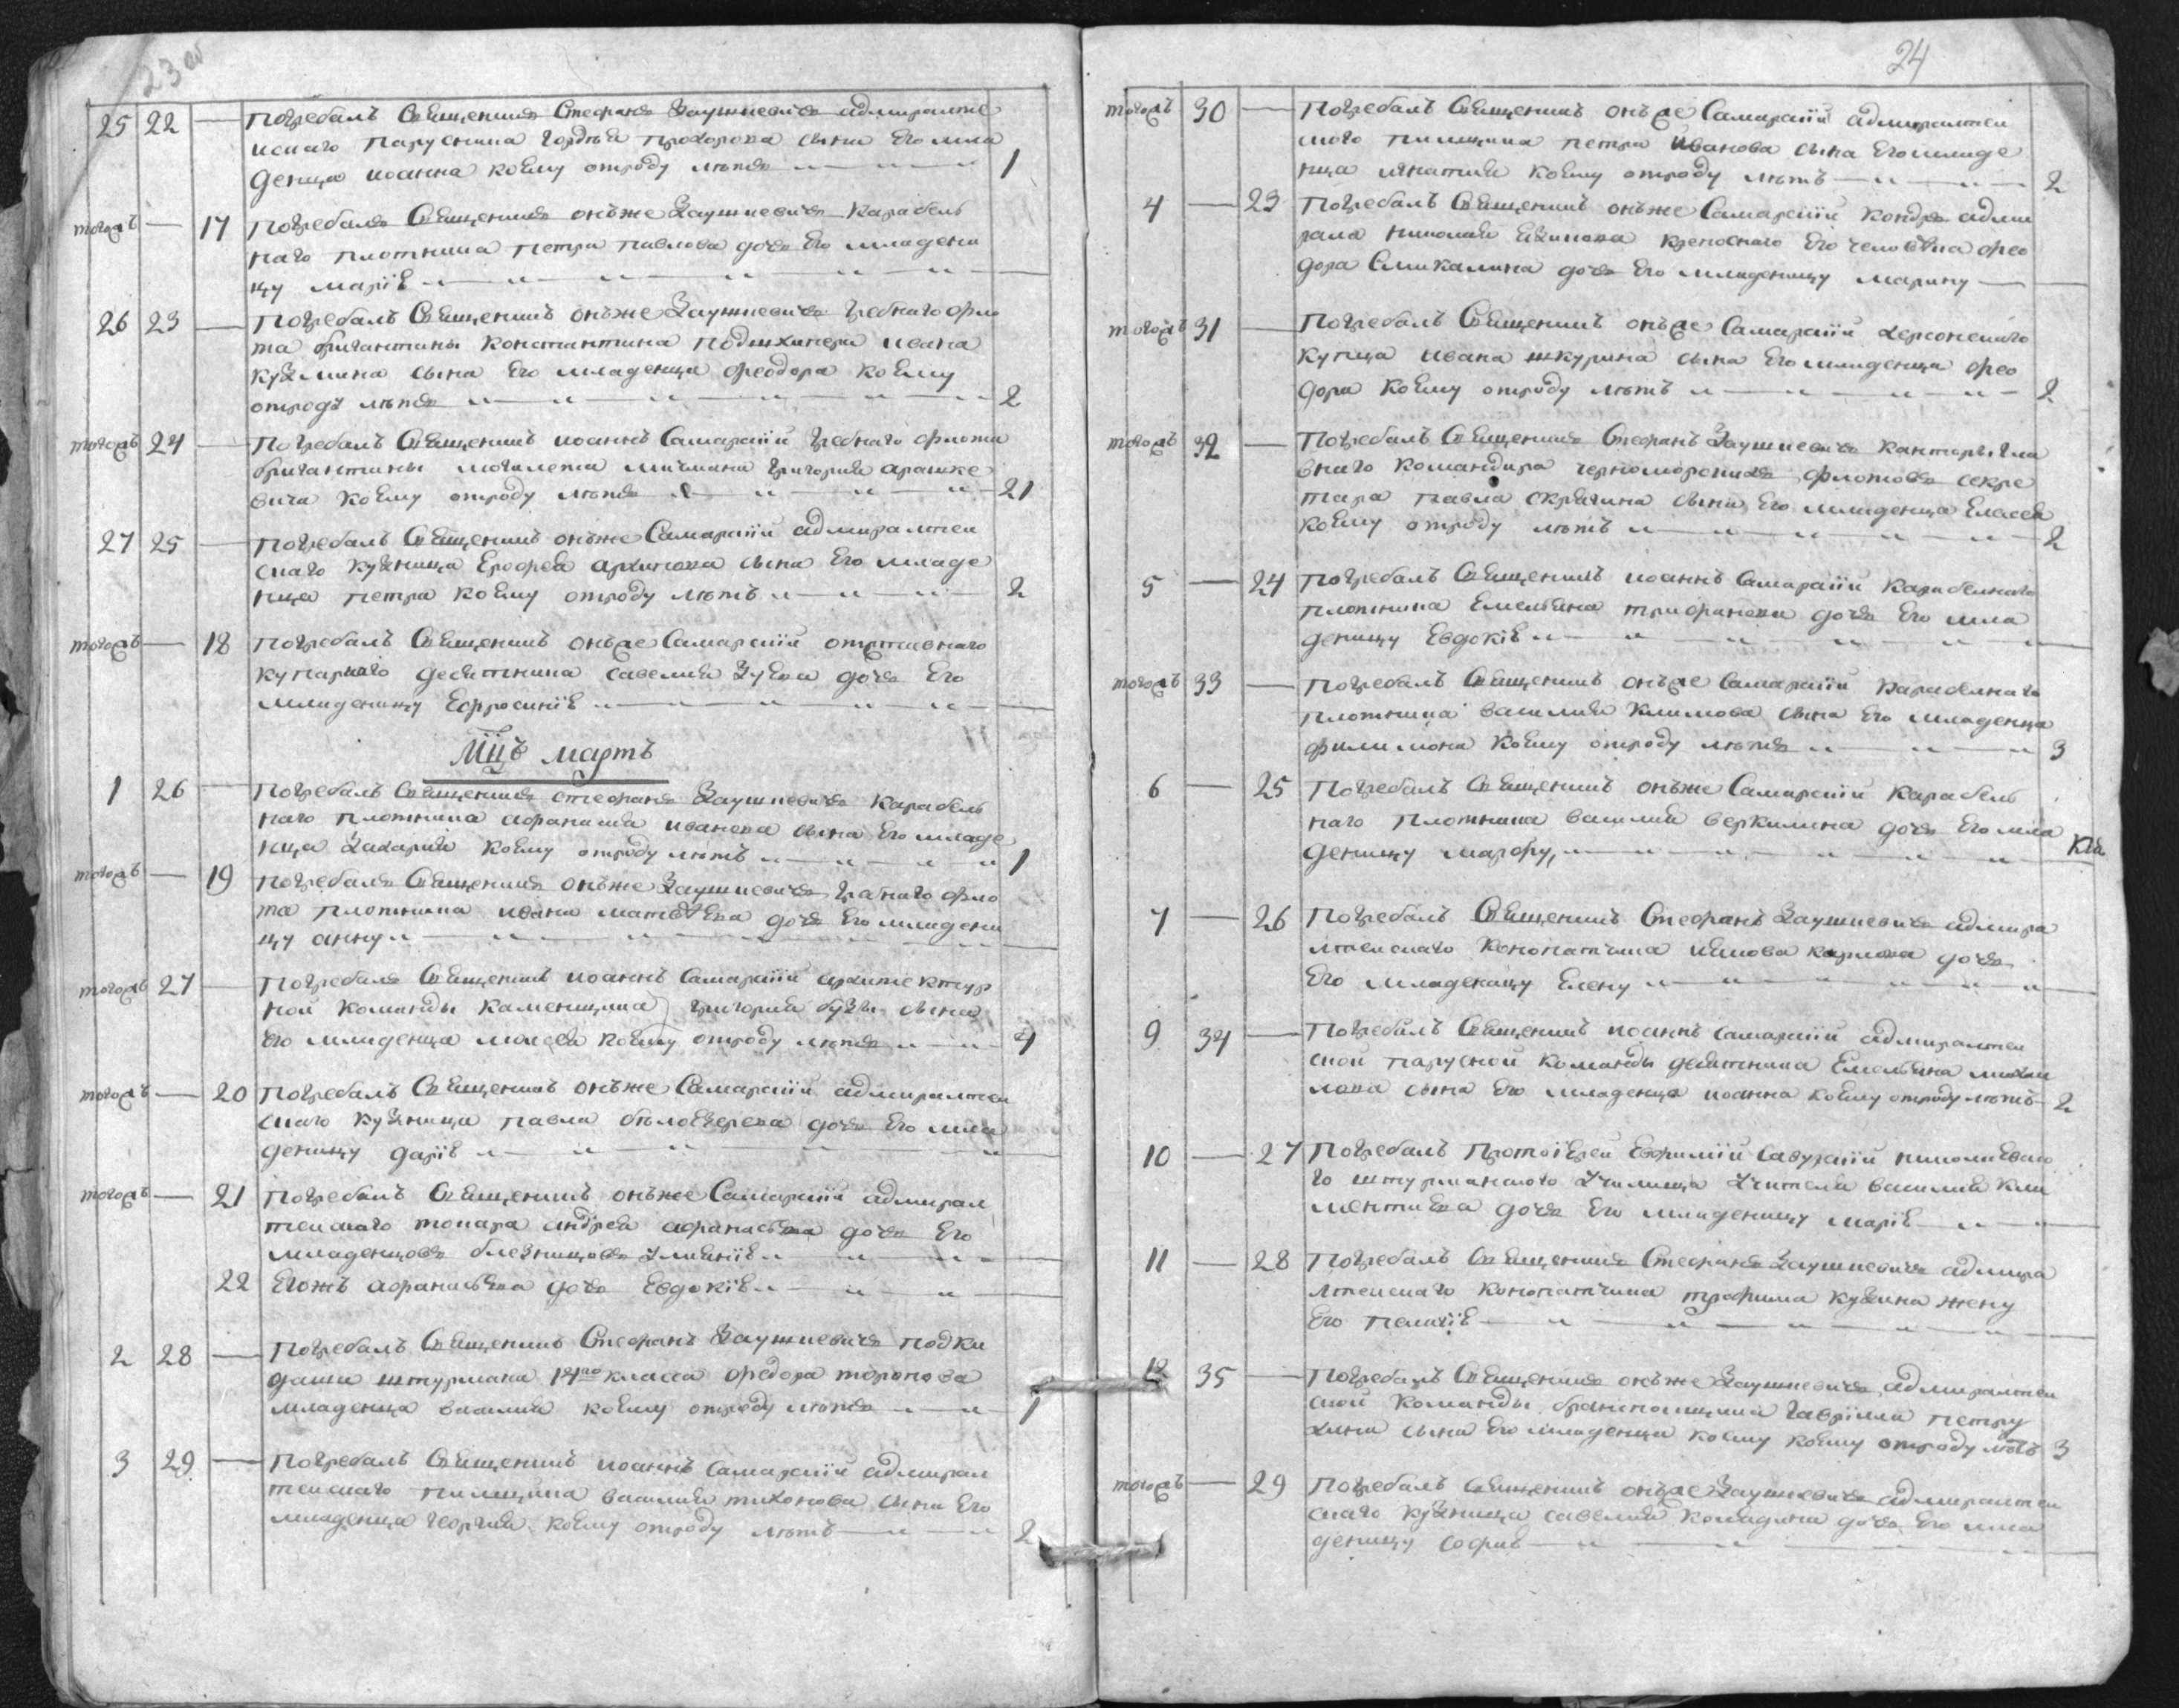 23 об
25 22 — Погребалъ Священникъ Стефанъ Заушкевичъ адмиралте
искаго парусника Гордѣя Прохорова сына Его мла
денца Иоанна коему отроду лѣтъ — 1
тогожъ — 17 Погребалъ Священникъ онъже Заушкевичъ карабель
наго плотника Петра Павлова дочь Его младени
цу Маріѣ
26 23 — Погребалъ Священникъ онъже Заушкевичъ гребнаго фло
та бригантины Константина подшхипера Ивана
Кузмина сына Его младенца Феодора коему
отроду лѣтъ — 2
тогожъ 24 — Погребалъ Священникъ Иоаннъ Самарскій гребнаго флота
бригантины мичмана Григория
вича коему отроду лѣтъ — 21
27 25 — Погребалъ Священникъ онъже Самарскій адмиралтеи
скаго кузница Ерофея Архипова сына Его младе
нца Петра коему отроду лѣтъ — 2
тогожъ — 18 Погребалъ Священникъ онъже Самарскій отставнаго
купарнаго десятника Савелия Зуева дочь Его
младеницу Ефросиніѣ
Мцъ мартъ
1 26 — Погребалъ Священникъ Стефанъ Заушкевичъ карабель
наго плотника Афанасия Иванова сына Его младе
нца Захария коему отроду лѣтъ — 1
тогожъ — 19 Погребалъ Священникъ онъже Заушкевичъ гребнаго фло
та плотника Ивана Матвѣева дочь Его младени
цу Анну
тогожъ 27 — Погребалъ Священникъ Иоаннъ Самарскій архитектур
ной команды каменщика Григория Бузы сына
Его младенца Моисея коему отроду лѣтъ — 4
тогожъ — 20 Погребалъ Священникъ онъже Самарскій адмиралтеи
скаго кузница Павла Бѣлозерева дочь Его мла
деницу Даріѣ
тогожъ — 21 Погребалъ Священникъ онъже Самарскій адмирал
теискаго токара Андрея Афанасьева дочь Его
младенцовъ близницовъ Улияніѣ
22 Егожъ Афанасьева дочь Евдокіѣ
2 28 — Погребалъ Священникъ Стефанъ Заушкевичъ подки
даша штурмана 14го класса Федора Торопова
младенца Василия коему отроду лѣтъ — 1
3 29 — Погребалъ Священникъ Иоаннъ Самарскій адмирал
теискаго пилщика Василия Тихонова сына Его
младенца Георгия коему отроду лѣтъ — 2
24
тогожъ 30 — Погребалъ Священникъ онъже Самарскій адмиралтеи
скаго пилщика Петра Иванова сына Его младе
нца Игнатия коему отроду лѣтъ — 2
4 — 23 Погребалъ Священникъ онъже Самарскій кондръ адми
рала Николая крепоснаго Его человѣка Фео
дора дочь Его младеницу Марину
тогожъ 31 — Погребалъ Священникъ онъже Самарскій херсонскаго
купца Ивана Шкурина сына Его младенца Фео
дора коему отроду лѣтъ — 2
тогожъ 32 — Погребалъ Священникъ Стефанъ Заушкевичъ канторы гла
внаго командира черноморскихъ флотовъ секре
тара Павла Скрягина сына Его младенца Елесея
коему отроду лѣтъ — 2
5 — 24 Погребалъ Священникъ Иоаннъ Самарскій карабелнаго
плотника Емельяна Трифанова дочь Его мла
деницу Евдокіѣ
тогожъ 33 — Погребалъ Священникъ онъже Самарскій карабелнаго
плотница Василия Климова сына Его младенца
Филимона коему отроду лѣтъ — 3
6 — 25 Погребалъ Священникъ онъже Самарскій карабель
наго плотника Василия Веркилина дочь Его мла
деницу Марфу,
7 — 26 Погребалъ Священникъ Стефанъ Заушкевичъ адмира
лтеискаго конопатчика Иакова Карпова дочь
Его младеницу Елену
9 34 — Погребалъ Священникъ Иоаннъ Самарскій адмиралтеи
скои парусной команды десятника Емельяна Михаи
лова сына Его младенца Иоанна коему отроду лѣтъ — 2
10 — 27 Погребалъ Протоіерей Евфимій Савурскій николаевска
го штурманскаго училища учителя Василия Кли
ментиева дочь Его младеницу Маріѣ
11 — 28 Погребалъ Священникъ Стефанъ Заушкевичъ адмира
лтеискаго конопатчика Трофима Кузина жену
Его Пелагіѣ
12 35 — Погребалъ Священникъ онъже Заушкевичъ адмиралтеи
скои команды Гавріила Петру
хина сына Его младенца коему коему отроду лѣтъ 3
тогожъ — 29 Погребалъ Священникъ онъже Заушкевичъ адмиралтеи
скаго кузница Савелия Колядина дочь Его мла
деницу Софиѣ